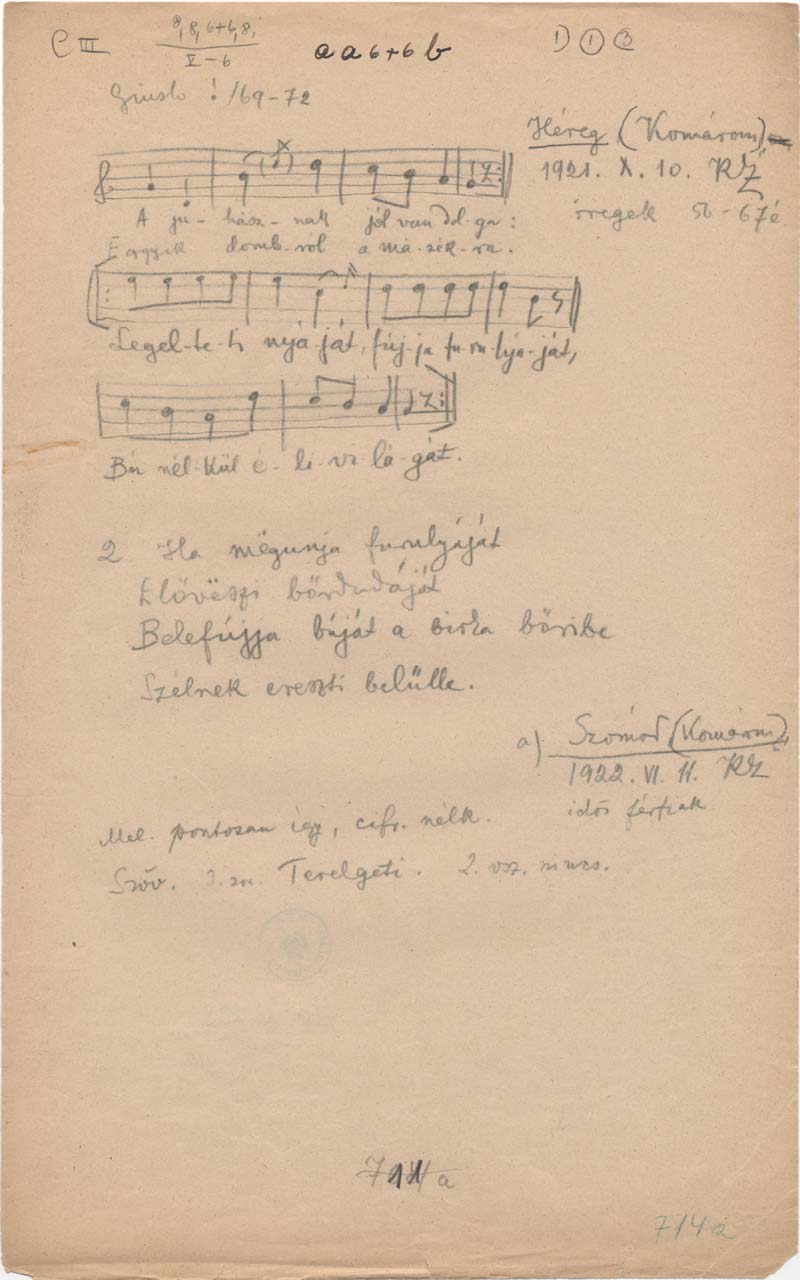 C III
8, 8, 6+6, 8,
V - 6
a a 6+6 b
1) ① ③
Giusto ! /69-72
Héreg (Komárom)
1921. X. 10. KZ
öregek 56 - 67é
A ju - hász - nak jól van dol - ga :
Egyik domb - ról a má - sik - ra.
Legel - te - ti nyá - ját, fúj - ja fu - ru - lyá - ját,
Bú nél - kül é - li vi - lá - gát.
2 Ha mëgunja furulyáját
Elővëszi bőrdudáját
Belefújja búját a birka bőribe
Szélnek ereszti belülle.
a) Szomód (Komárom)
1922. VI. 11. KZ
idős férfiak
Mel. pontosan így, cifr. nélk.
Szöv. 3. sor Terelgeti. 2. vsz. nincs.
711 a
714a